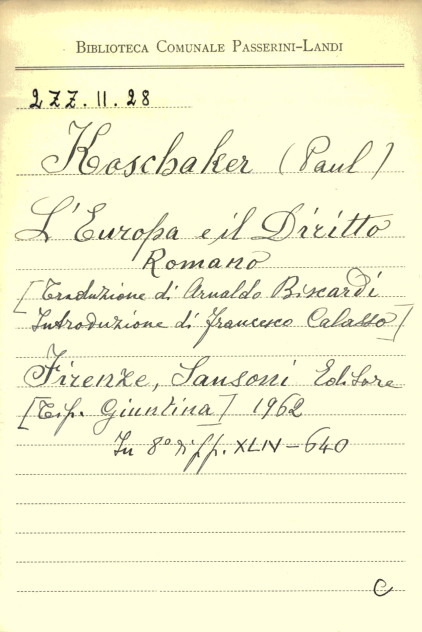 BIBLIOTECA COMUNALE PASSERINI-LANDI
2ZZ.11.28
Koschaker (Paul)
L'Europa e il Diritto
Romano
[Traduzione di Arnaldo Biscardi
Introduzione di Francesco Calasso]
Firenze, Sansoni Editore
[Tip. Giuntina] 1962
In 8º di pp. XLIV-640
C